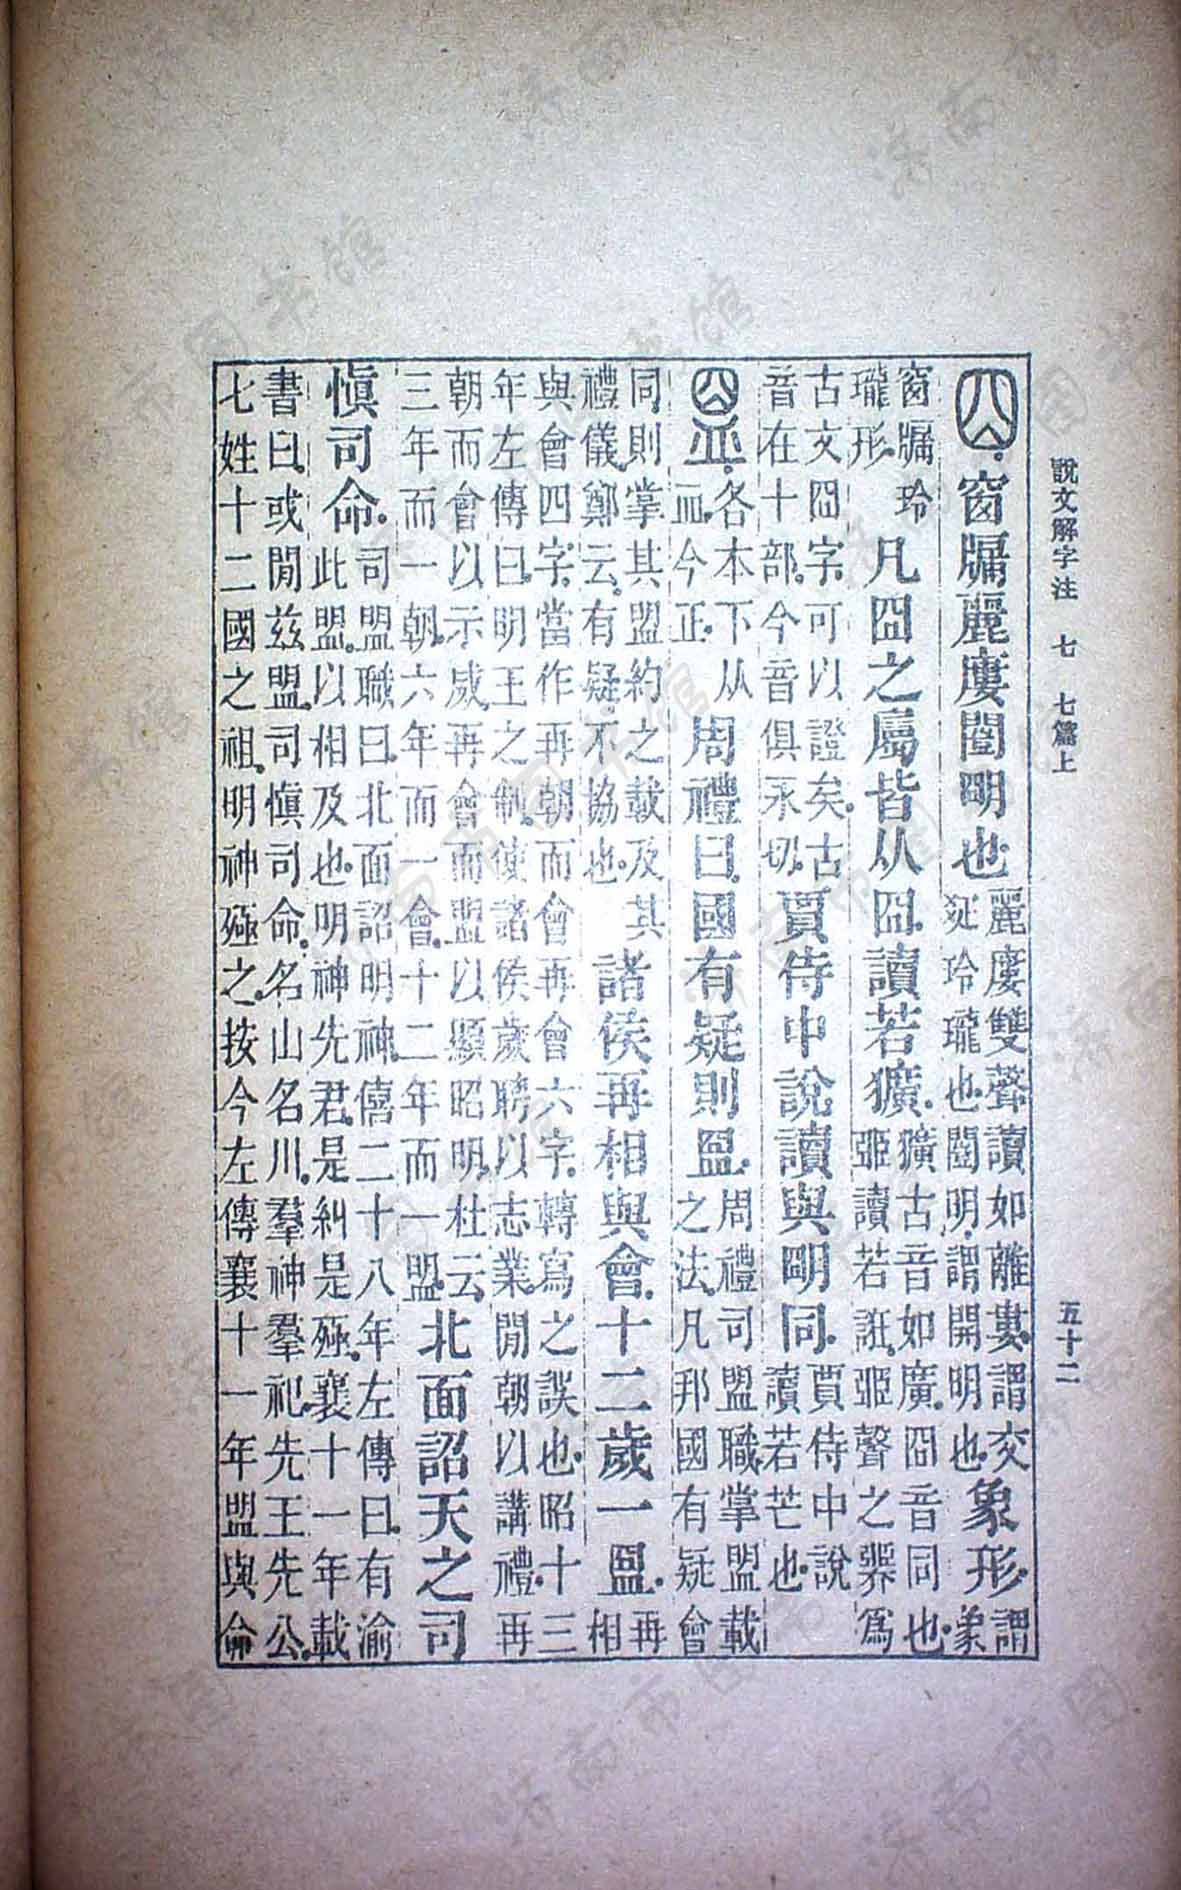 說文解字注 七 七篇上 五十二
囧.窗牖麗廔闓明也.麗廔雙聲讀如離婁.謂交
延玲瓏也.闓明.謂開明也.象形.謂
象
窗牖玲
瓏形.凡囧之屬皆从囧.讀若獷.獷古音如廣.囧音同也.
臦讀若誑.臦聲之臩爲
古文囧字.可以證矣.古
音在十部.今音俱永切.賈侍中說讀與明同.賈侍中說
讀若芒也.
𥁰.各本下从
血.今正.周禮曰.國有疑則𥁰.周禮司盟職掌盟載
之法.凡邦國有疑會
同則掌其盟約之載及其
禮儀.鄭云.有疑不協也.諸侯再相與會.十二歲一𥁰.再
相
與會四字.當作再朝而會再會六字.轉寫之誤也.昭十三
年左傳曰.明王之制.使諸侯歲聘以志業.閒朝以講禮.再
朝而會以示威.再會而盟以顯昭明.杜云.
三年而一朝.六年而一會.十二年而一盟.北面詔天之司
慎司命.司盟職曰.北面詔明神.僖二十八年左傳曰.有渝
此盟.以相及也.明神先君.是糾是殛.襄十一年載
書曰.或閒茲盟.司慎司命.名山名川.羣神羣祀.先王先公.
七姓十二國之祖.明神殛之.按今左傳襄十一年盟與命